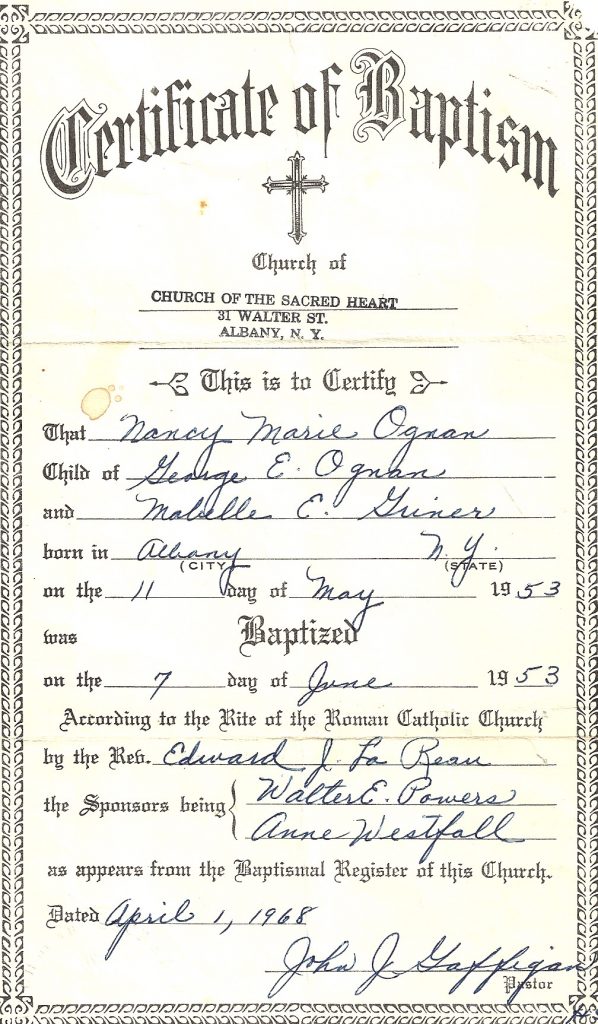 Certificate of Baptism
Church of
CHURCH OF THE SACRED HEART
31 WALTER ST.
ALBANY, N. Y.
This is to Certify
That Nancy Marie Ognan
Child of George E. Ognan
and Mabelle E. Griner
born in Albany N. Y.
(CITY) (STATE)
on the 11 day of May 1953
was Baptized
on the 7 day of June 1953
According to the Rite of the Roman Catholic Church
by the Rev. Edward J. La Reau
the Sponsors being { Walter E. Powers
Anne Westfall
as appears from the Baptismal Register of this Church.
Dated April 1, 1968
John J Gaffigan
Pastor